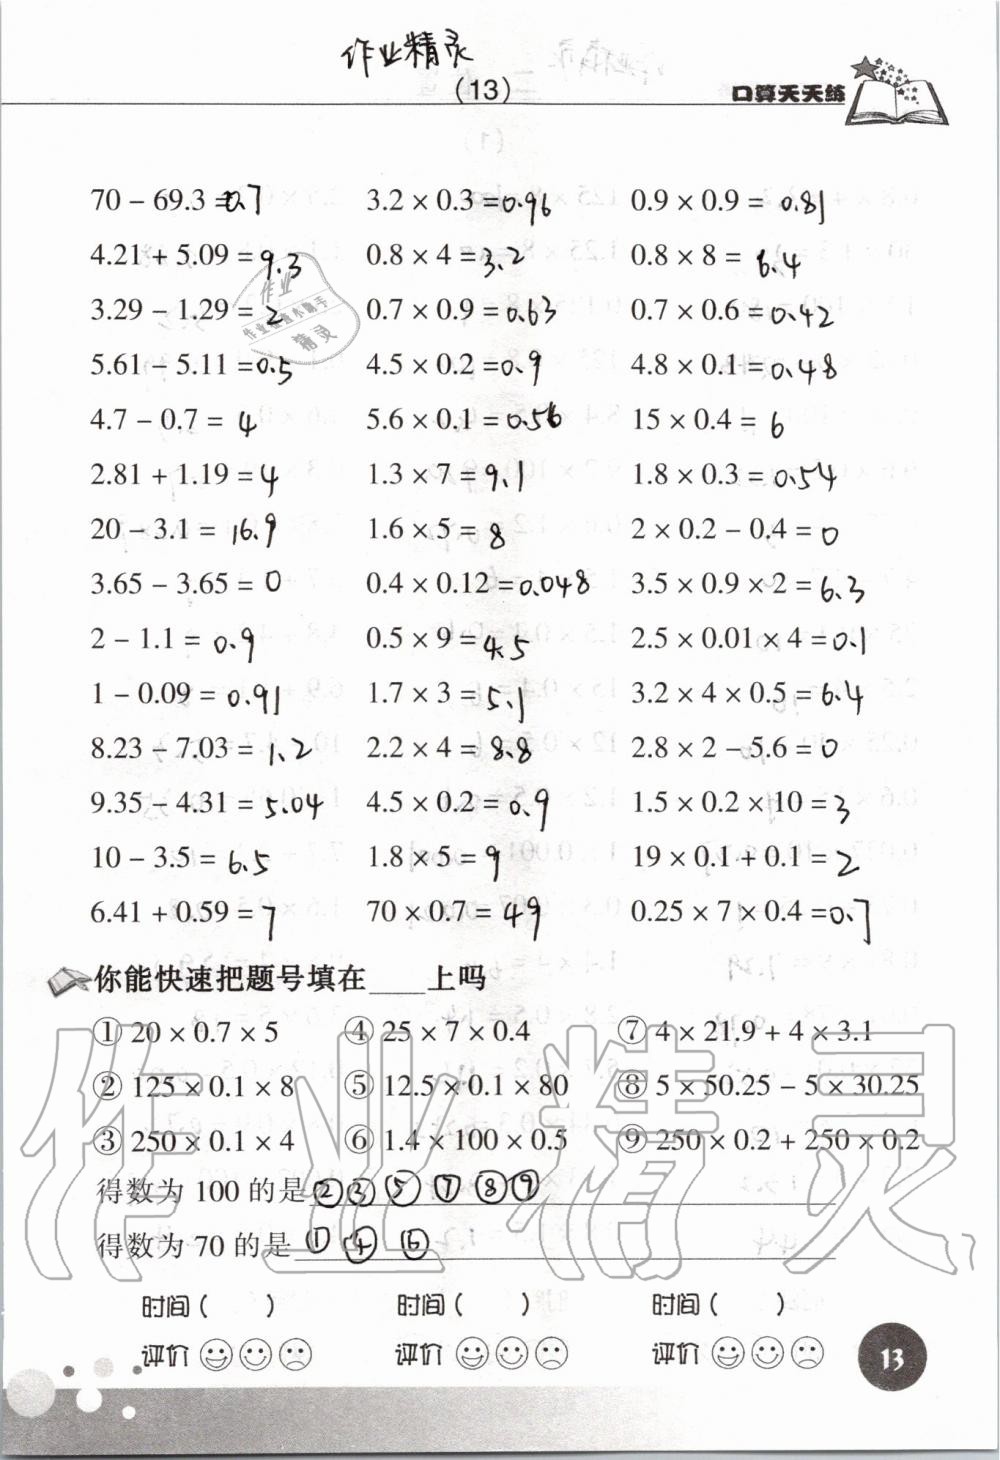 作业精灵
(13)
口算天天练
70 − 69.3 = 0.7 3.2 × 0.3 = 0.96 0.9 × 0.9 = 0.81
4.21 + 5.09 = 9.3 0.8 × 4 = 3.2 0.8 × 8 = 6.4
3.29 − 1.29 = 2 0.7 × 0.9 = 0.63 0.7 × 0.6 = 0.42
5.61 − 5.11 = 0.5 4.5 × 0.2 = 0.9 4.8 × 0.1 = 0.48
4.7 − 0.7 = 4 5.6 × 0.1 = 0.56 15 × 0.4 = 6
2.81 + 1.19 = 4 1.3 × 7 = 9.1 1.8 × 0.3 = 0.54
20 − 3.1 = 16.9 1.6 × 5 = 8 2 × 0.2 − 0.4 = 0
3.65 − 3.65 = 0 0.4 × 0.12 = 0.048 3.5 × 0.9 × 2 = 6.3
2 − 1.1 = 0.9 0.5 × 9 = 4.5 2.5 × 0.01 × 4 = 0.1
1 − 0.09 = 0.91 1.7 × 3 = 5.1 3.2 × 4 × 0.5 = 6.4
8.23 − 7.03 = 1.2 2.2 × 4 = 8.8 2.8 × 2 − 5.6 = 0
9.35 − 4.31 = 5.04 4.5 × 0.2 = 0.9 1.5 × 0.2 × 10 = 3
10 − 3.5 = 6.5 1.8 × 5 = 9 19 × 0.1 + 0.1 = 2
6.41 + 0.59 = 7 70 × 0.7 = 49 0.25 × 7 × 0.4 = 0.7
你能快速把题号填在____上吗
① 20 × 0.7 × 5 ④ 25 × 7 × 0.4 ⑦ 4 × 21.9 + 4 × 3.1
② 125 × 0.1 × 8 ⑤ 12.5 × 0.1 × 80 ⑧ 5 × 50.25 − 5 × 30.25
③ 250 × 0.1 × 4 ⑥ 1.4 × 100 × 0.5 ⑨ 250 × 0.2 + 250 × 0.2
得数为 100 的是 ②③⑤⑦⑧⑨
得数为 70 的是 ①④⑥
时间( ) 时间( ) 时间( )
评价 评价 评价
13
作业精灵